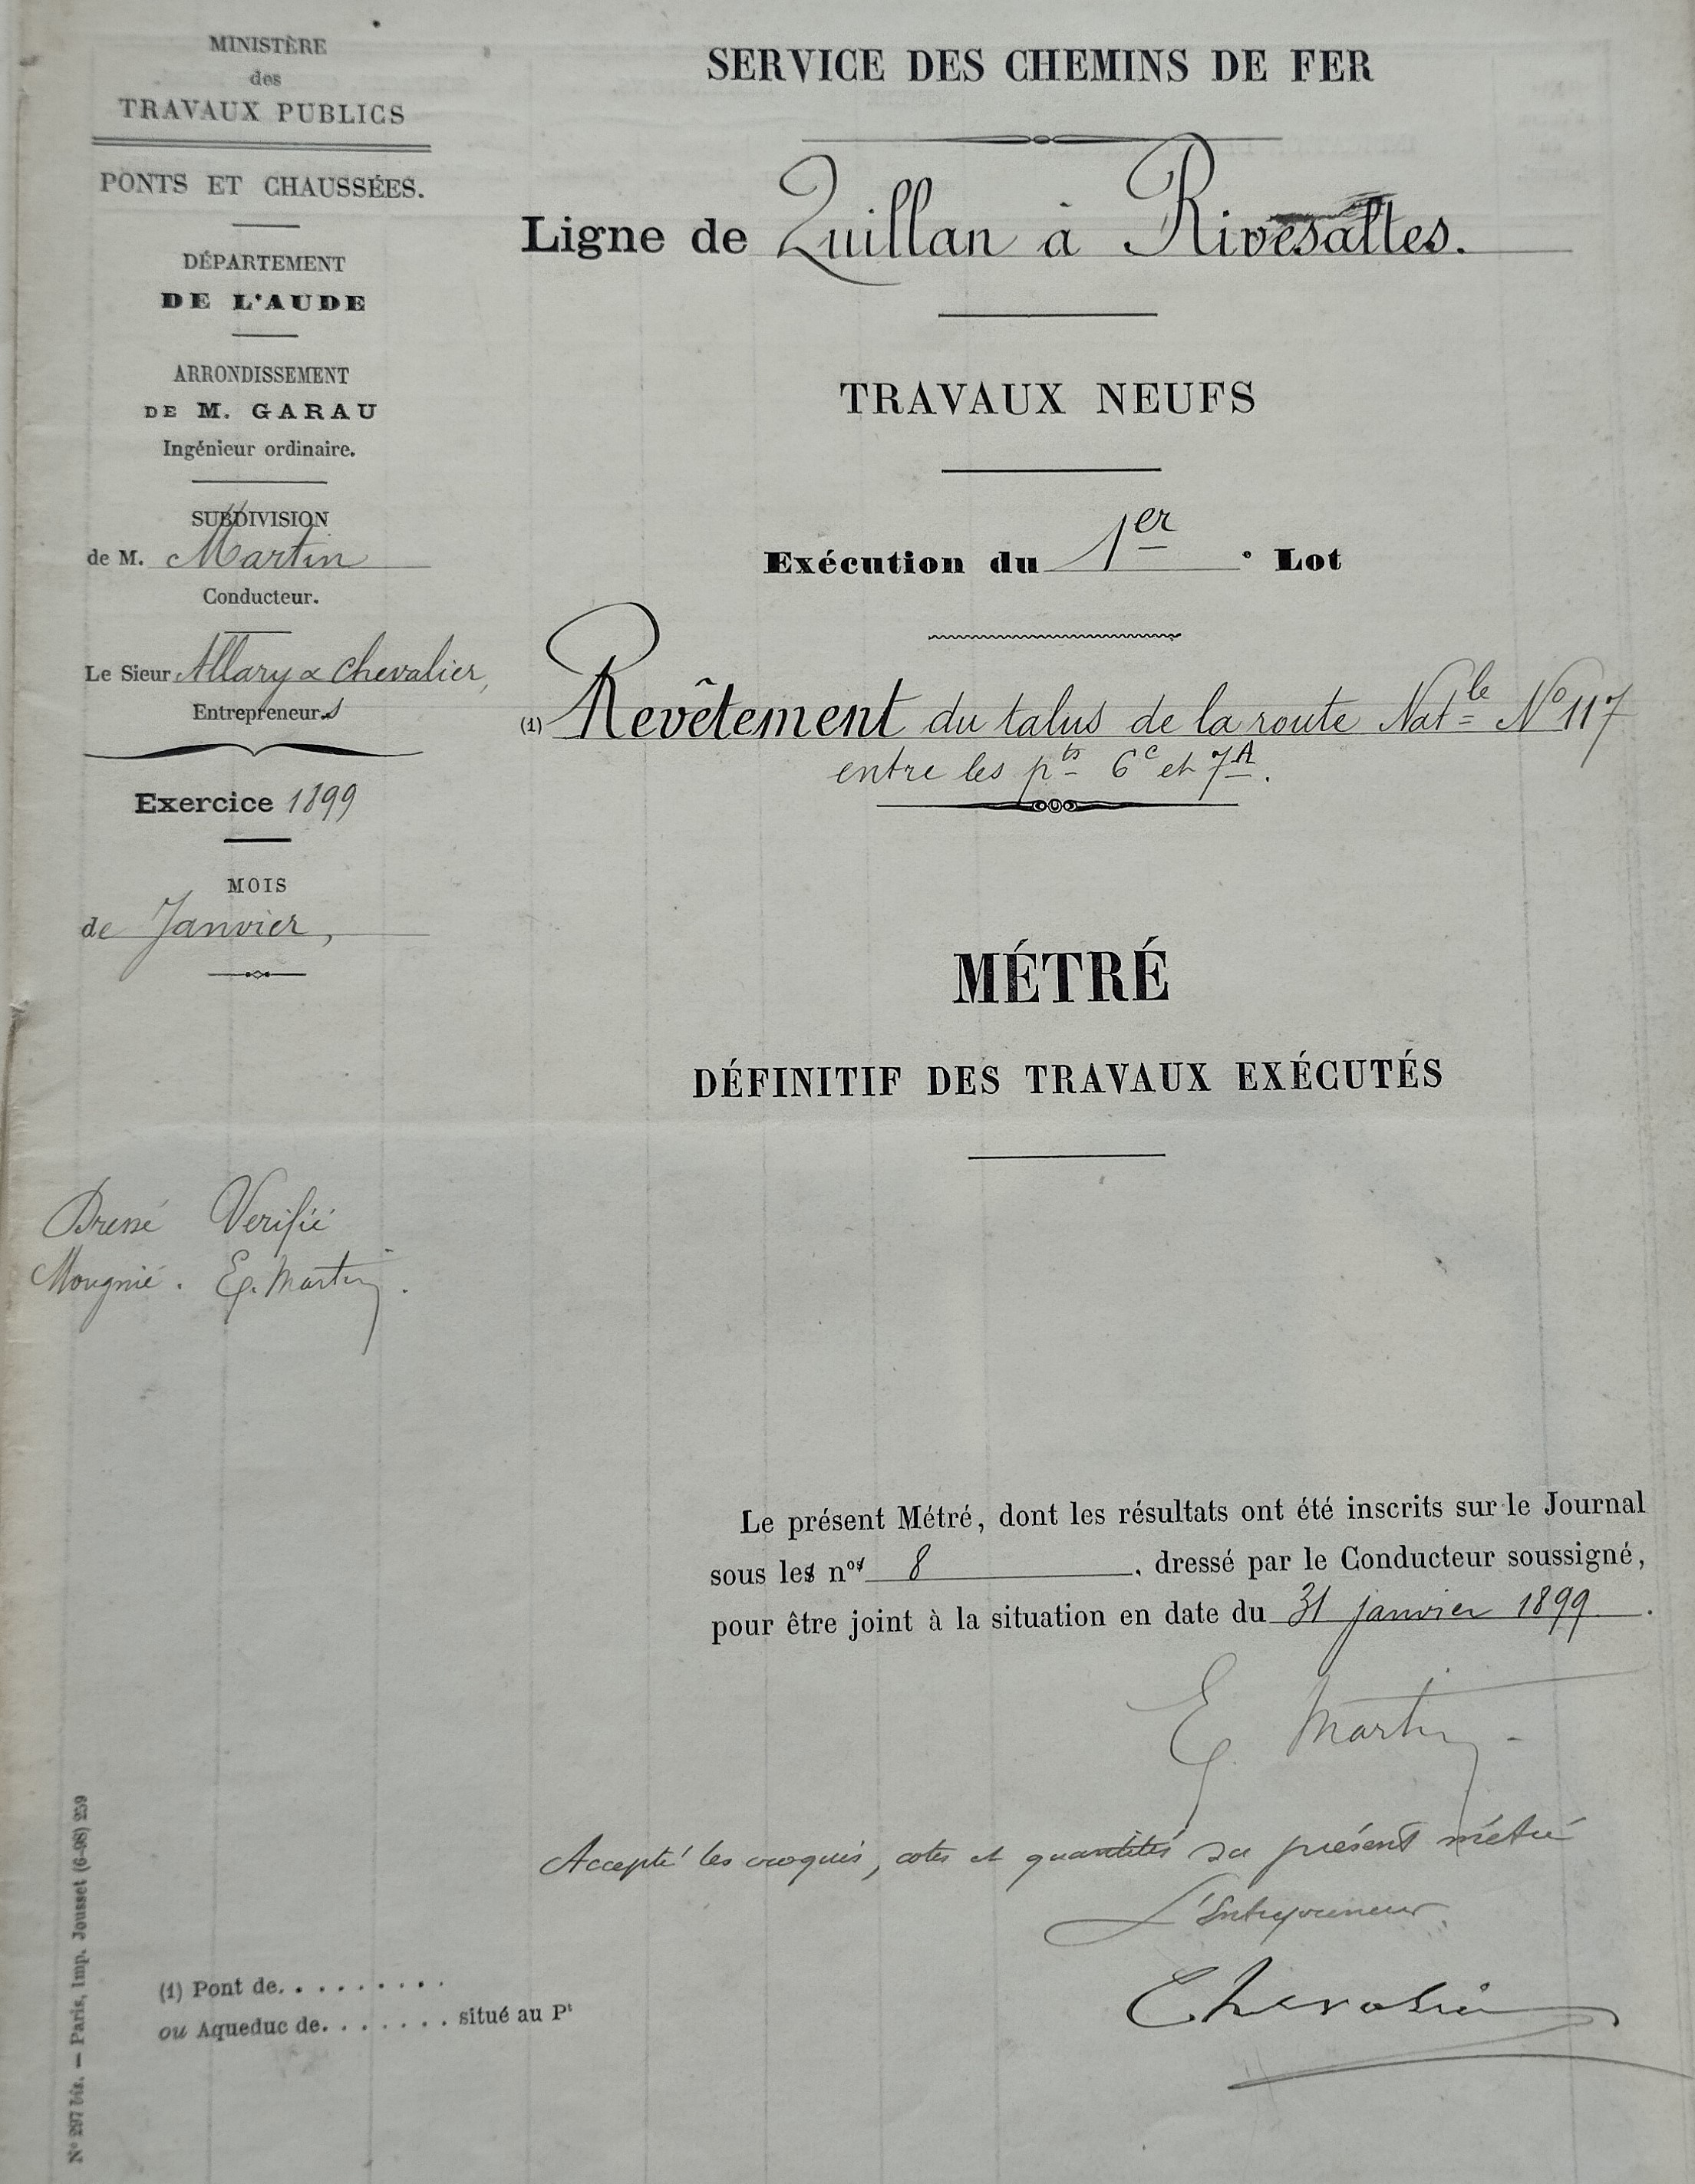 MINISTÈRE
des
TRAVAUX PUBLICS
PONTS ET CHAUSSÉES.
DÉPARTEMENT
DE L'AUDE
ARRONDISSEMENT
DE M. GARAU
Ingénieur ordinaire.
SUBDIVISION
de M. Martin
Conducteur.
Le Sieur Allary & Chevalier,
Entrepreneurs
Exercice 1899
MOIS
de Janvier,
Dressé Verifié
Mougnié. E. Martin.
SERVICE DES CHEMINS DE FER
Ligne de Quillan à Rivesaltes.
TRAVAUX NEUFS
Exécution du 1er e Lot
(1) Revêtement du talus de la route Natle No 117
entre les pts 6c et 7A.
MÉTRÉ
DÉFINITIF DES TRAVAUX EXÉCUTÉS
Le présent Métré, dont les résultats ont été inscrits sur le Journal
sous les nos 8 , dressé par le Conducteur soussigné,
pour être joint à la situation en date du 31 janvier 1899 .
E. Martin.
Accepté les croquis, cotes et quantités du présent métré
L'Entrepreneur,
Chevalier
(1) Pont de. . . . . . . . .
ou Aqueduc de. . . . . . . . situé au Pt
N° 297 bis. — Paris, Imp. Jousset (6-98) 259